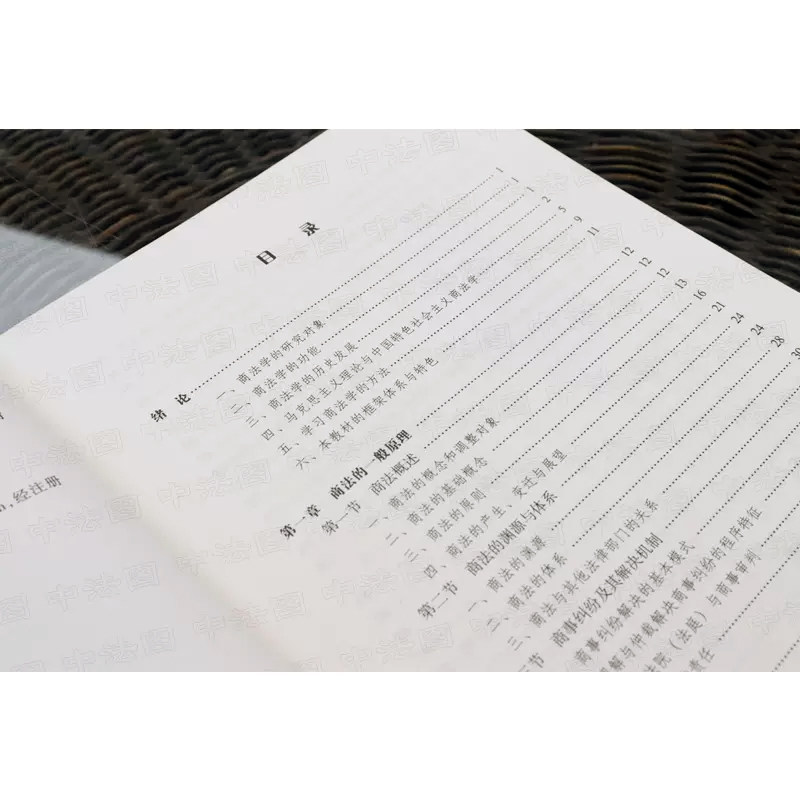 目 录
绪 论 1
一、商法学的研究对象 1
二、商法学的功能 1
三、商法学的历史发展 2
四、马克思主义理论与中国特色社会主义商法学 5
五、学习商法学的方法 9
六、本教材的框架体系与特色 11
第一章 商法的一般原理 12
第一节 商法概述 12
一、商法的概念和调整对象 12
二、商法的基础概念 13
三、商法的原则 16
四、商法的产生、变迁与展望 21
第二节 商法的渊源与体系 24
一、商法的渊源 24
二、商法的体系 28
三、商法与其他法律部门的关系 30
节 商事纠纷及其解决机制
商事纠纷解决的基本模式
解与仲裁解决商事纠纷的程序特征
法院（法庭）与商事审判
责任
经注册
中法图